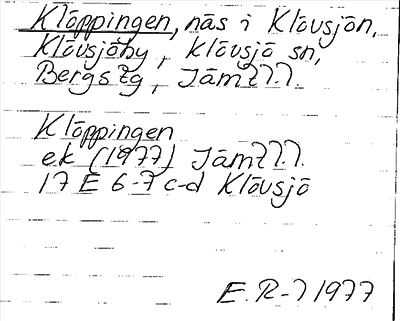 Klöppingen, näs i Klövsjön,
Klövsjöby, Klövsjö sn,
Bergs tg, Jämtl.l.
Klöppingen
ek (1977) Jämtl.l.
17 E 6-7 c-d Klövsjö
E. R-l 1977